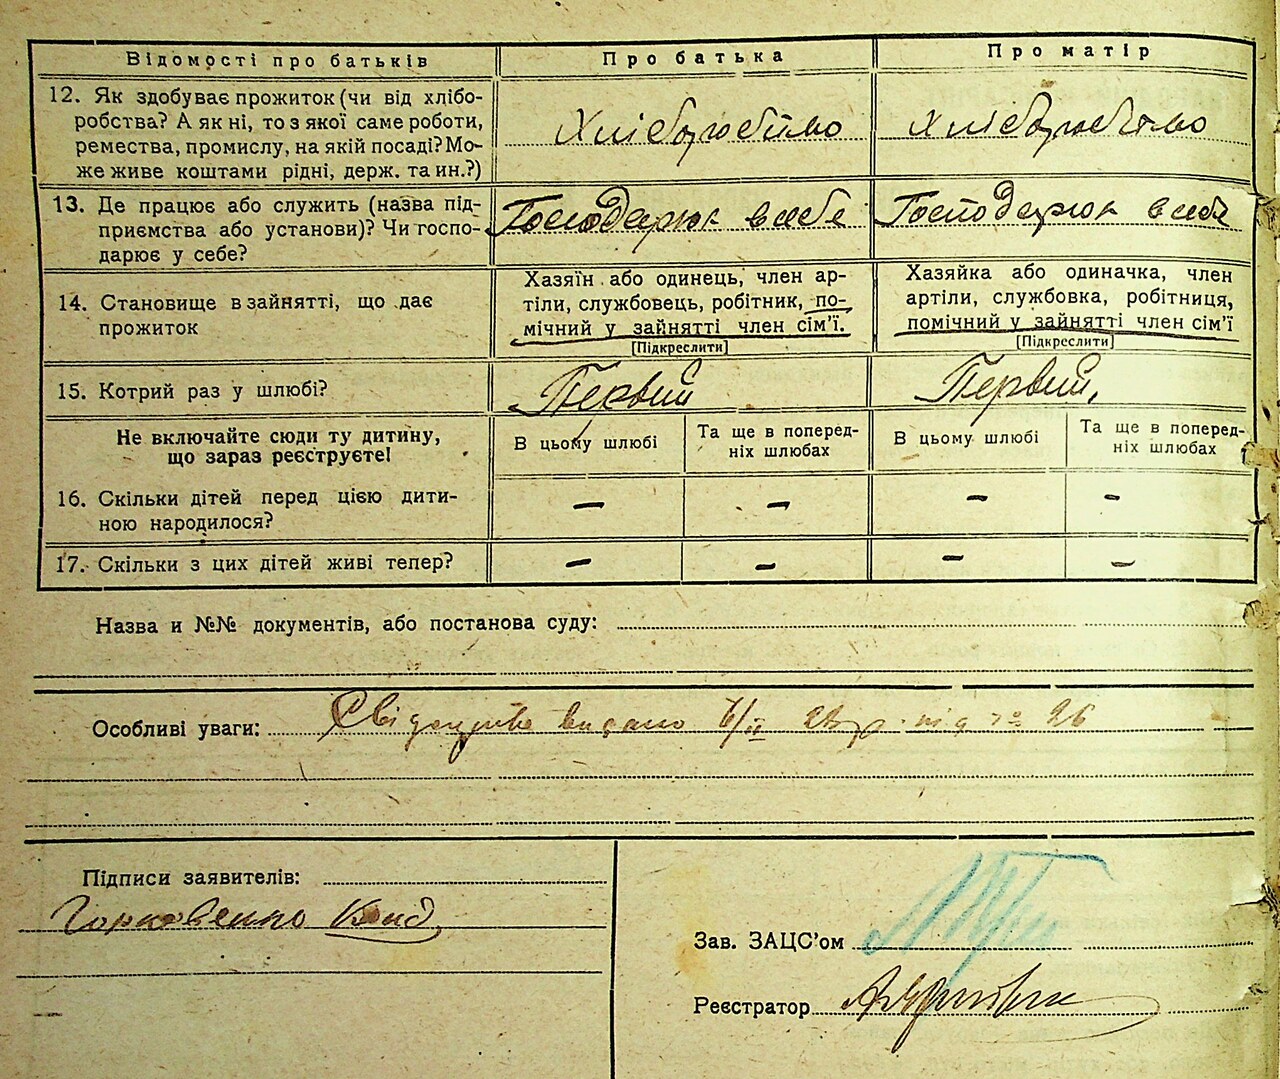 Відомості про батьків
Про батька
Про матір
12. Як здобуває прожиток (чи від хлібо-
робства? А як ні, то з якої саме роботи,
ремества, промислу, на якій посаді? Мо-
же живе коштами рідні, держ. та ин.?)
13. Де працює або служить (назва під-
приємства або установи)? Чи госпо-
дарює у себе?
14. Становище в зайнятті, що дає
прожиток
Хазяїн або одинець, член ар-
тіли, службовець, робітник, по-
мічний у зайнятті член сім'ї.
[Підкреслити]
Хазяйка або одиначка, член
артіли, службовка, робітниця,
помічний у зайнятті член сім'ї
[Підкреслити]
15. Котрий раз у шлюбі?
Первий
Первий,
Не включайте сюди ту дитину,
що зараз реєструєте!
В цьому шлюбі
Та ще в поперед-
ніх шлюбах
В цьому шлюбі
Та ще в поперед-
ніх шлюбах
16. Скільки дітей перед цією дити-
ною народилося?
– – – –
17. Скільки з цих дітей живі тепер?
– – – –
Назва и №№ документів, або постанова суду:
Особливі уваги: видано під № 26
Підписи заявителів:
Горковенко
Зав. ЗАЦС'ом
Реєстратор